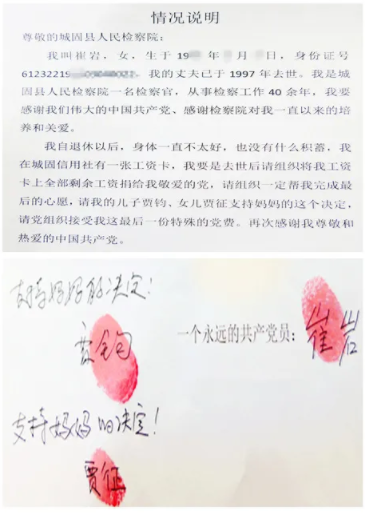 情况说明
尊敬的城固县人民检察院：
我叫崔岩，女，生于19 年 月 日，身份证号
61232219 。我的丈夫已于1997年去世。我是城
固县人民检察院一名检察官，从事检察工作40余年，我要
感谢我们伟大的中国共产党、感谢检察院对我一直以来的培
养和关爱。
我自退休以后，身体一直不太好，也没有什么积蓄，我
在城固信用社有一张工资卡，我要是去世后请组织将我工资
卡上全部剩余工资捐给我敬爱的党，请组织一定帮我完成最
后的心愿，请我的儿子贾钧、女儿贾征支持妈妈的这个决定，
请党组织接受我这最后一份特殊的党费。再次感谢我尊敬和
热爱的中国共产党。
妈妈的决定！
贾钧
一个永远的共产党员：崔岩
支持妈妈的决定！
贾征